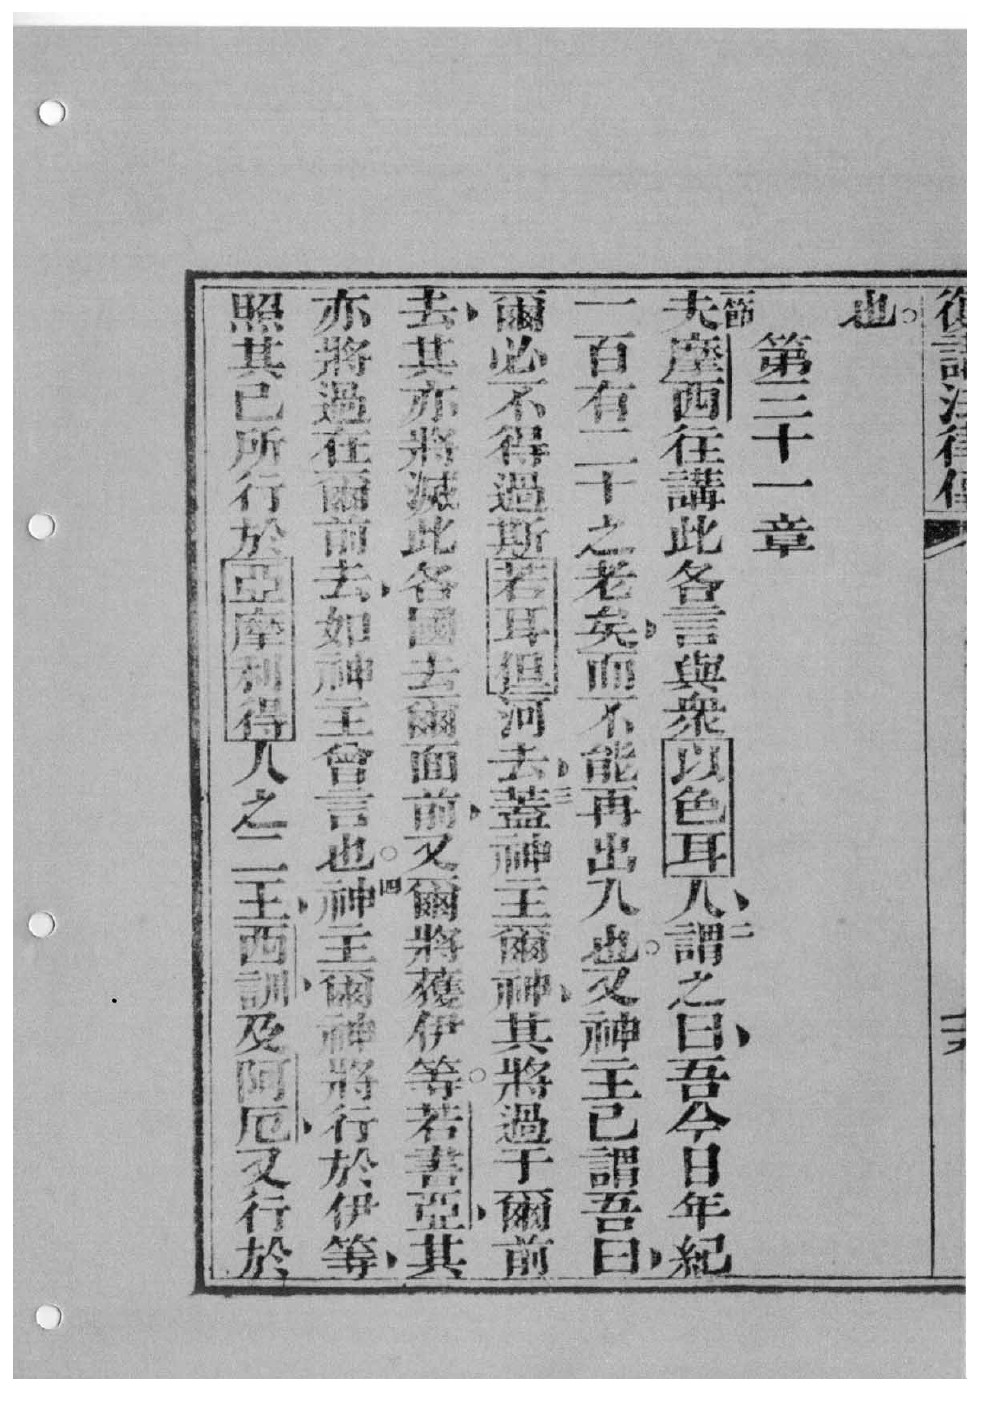 復講法律傳
也。
第三十一章
一節夫摩西往講此各言與衆以色耳人、二謂之曰、吾今日年紀
一百有二十之老矣、而不能再出入也。又神主已謂吾曰、
爾必不得過斯若耳但河去、三蓋神主爾神、其將過于爾前
去、其亦將滅此各國去爾面前、又爾將獲伊等。若書亞、其
亦將過在爾前去、如神主曾言也。四神主爾神將行於伊等、
照其已所行於亞摩利得人之二王、西訓、及阿厄、又行於